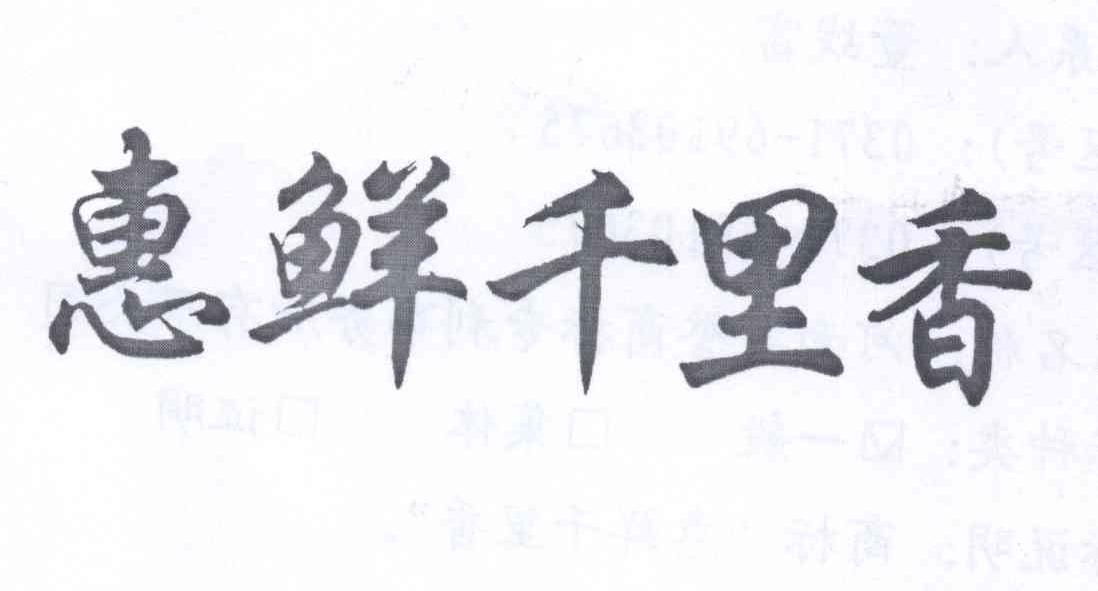 惠鲜千里香